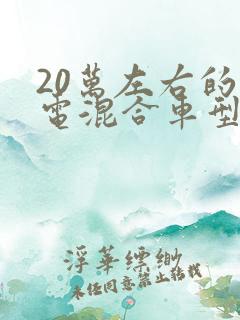 20萬左右的
電混合車型
浮華縹緲
未经同意禁止转载